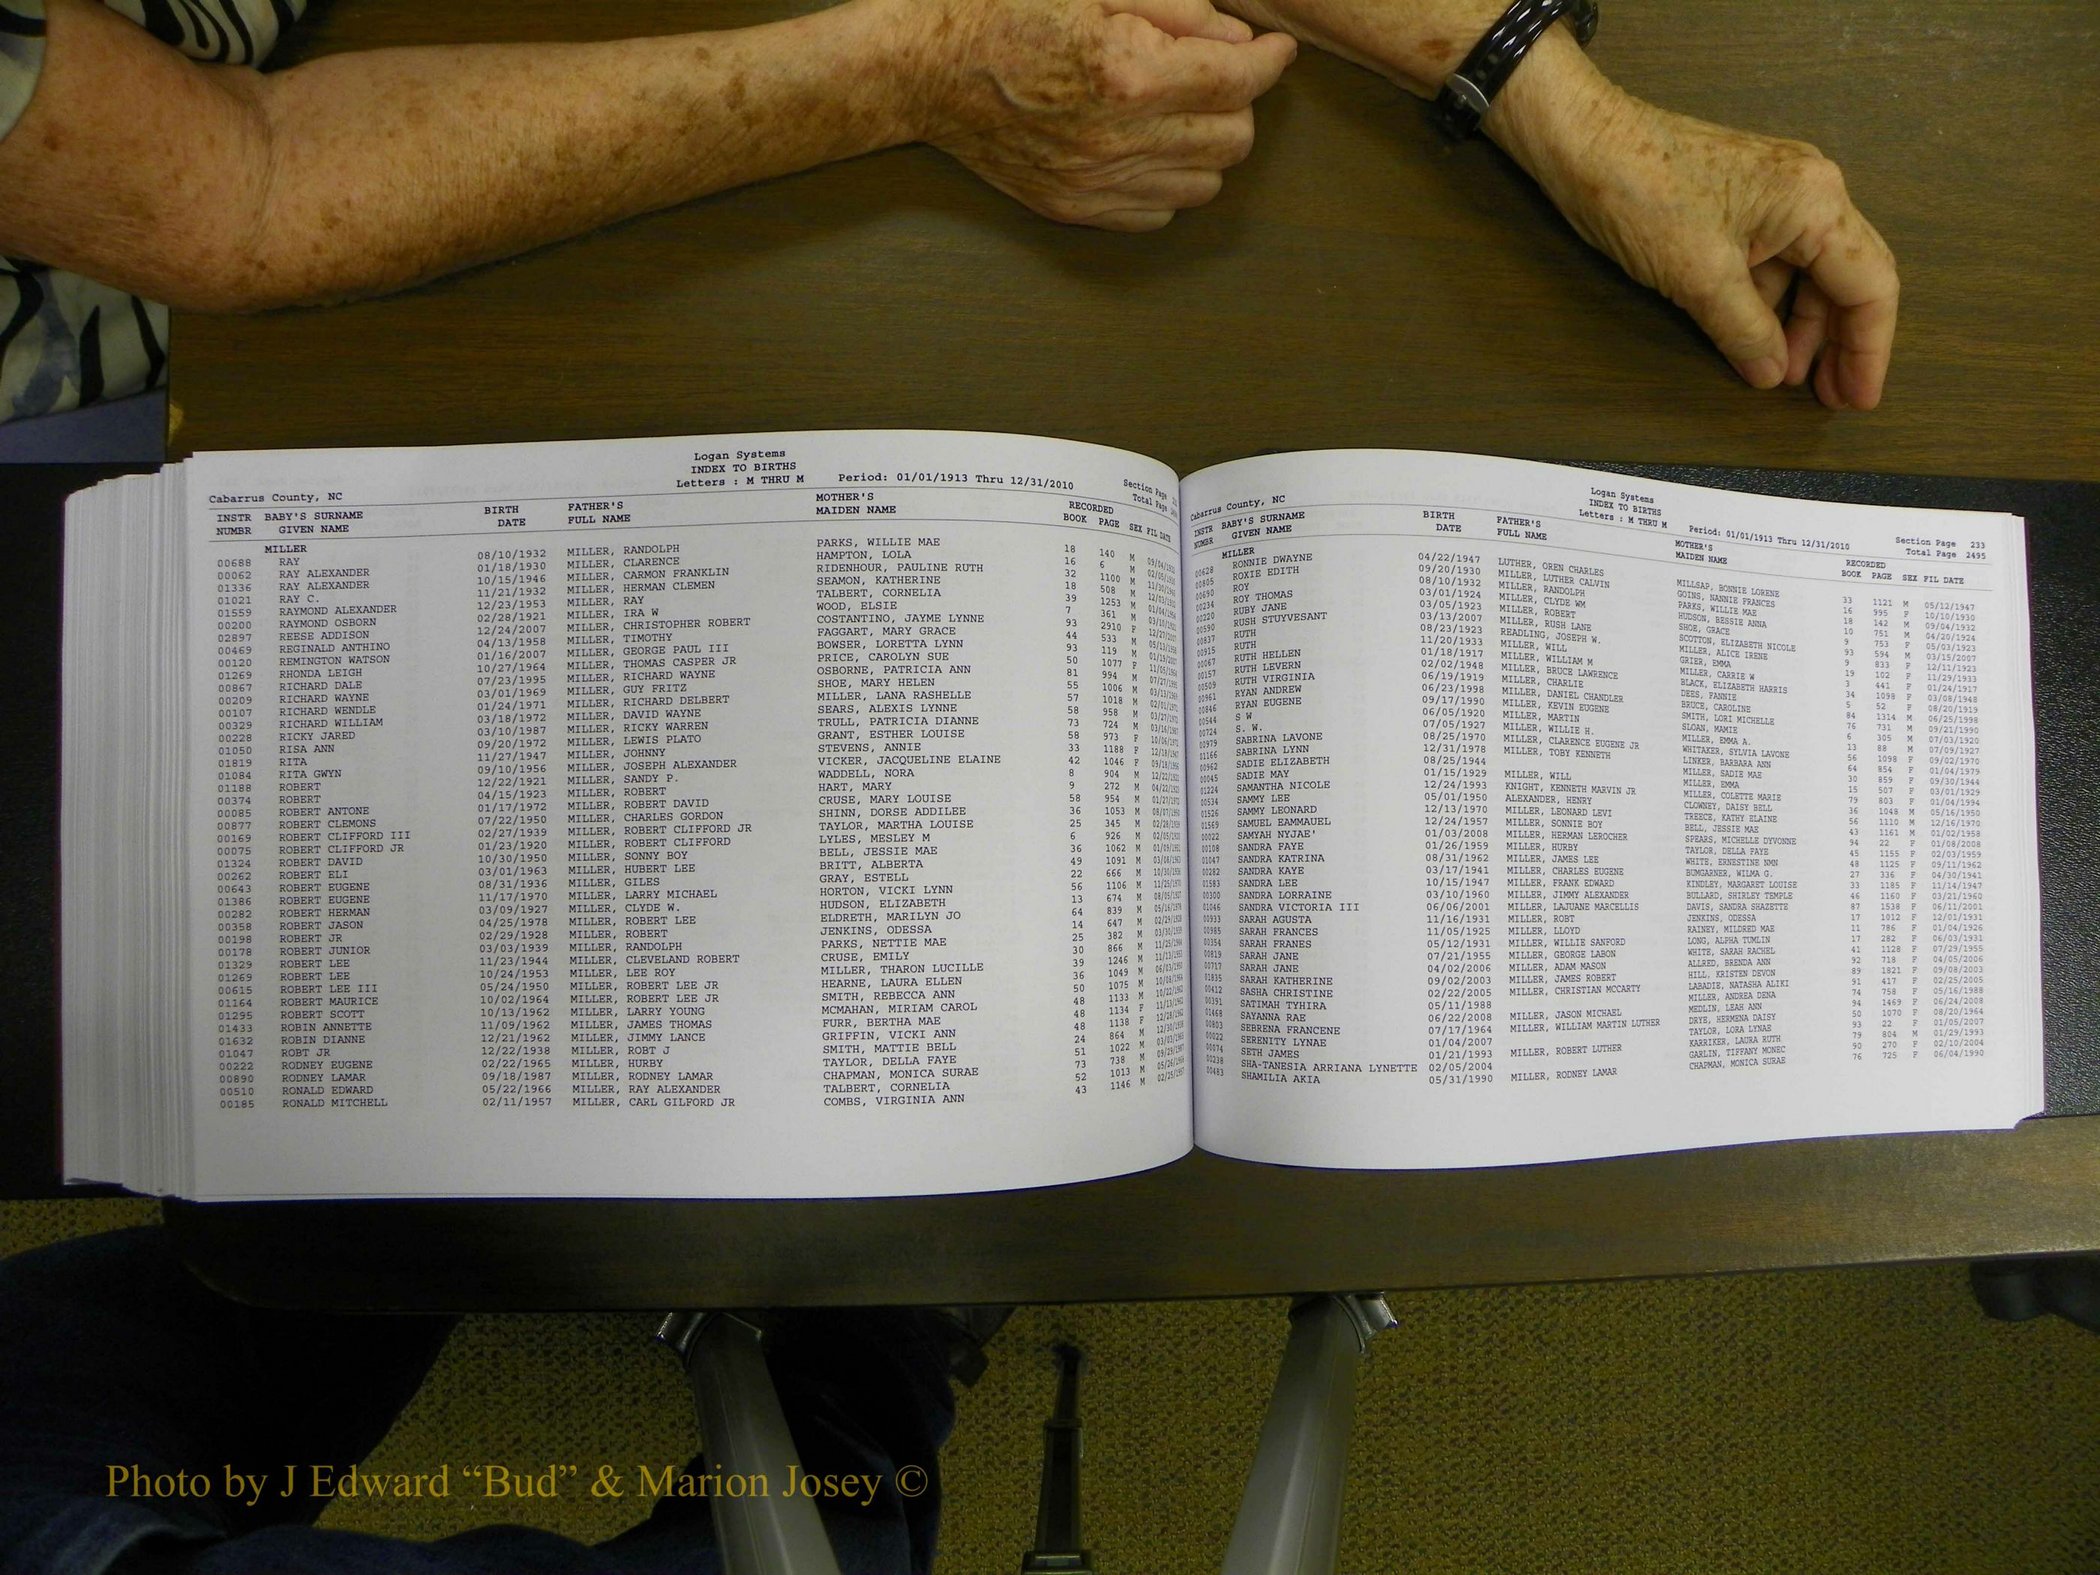 Logan Systems
INDEX TO BIRTHS
Cabarrus County, NC Letters : M THRU M Period: 01/01/1913 Thru 12/31/2010 Section Page
Total Page
INSTR BABY'S SURNAME BIRTH FATHER'S MOTHER'S RECORDED
NUMBR GIVEN NAME DATE FULL NAME MAIDEN NAME BOOK PAGE SEX FIL DATE
MILLER
00688 RAY 08/10/1932 MILLER, RANDOLPH PARKS, WILLIE MAE 18 140 M
00062 RAY ALEXANDER 01/18/1930 MILLER, CLARENCE HAMPTON, LOLA 16 6 M
01336 RAY ALEXANDER 10/15/1946 MILLER, CARMON FRANKLIN RIDENHOUR, PAULINE RUTH 32 1100 M
01021 RAY C. 11/21/1932 MILLER, HERMAN CLEMEN SEAMON, KATHERINE 18 508 M
01559 RAYMOND ALEXANDER 12/23/1953 MILLER, RAY TALBERT, CORNELIA 39 1253 M
00200 RAYMOND OSBORN 02/28/1921 MILLER, IRA W WOOD, ELSIE 7 361 M
02897 REESE ADDISON 12/24/2007 MILLER, CHRISTOPHER ROBERT COSTANTINO, JAYME LYNNE 93 2910 F
00469 REGINALD ANTHINO 04/13/1958 MILLER, TIMOTHY FAGGART, MARY GRACE 44 533 M
00120 REMINGTON WATSON 01/16/2007 MILLER, GEORGE PAUL III BOWSER, LORETTA LYNN 93 119 M
01269 RHONDA LEIGH 10/27/1964 MILLER, THOMAS CASPER JR PRICE, CAROLYN SUE 50 1077 F
00867 RICHARD DALE 07/23/1995 MILLER, RICHARD WAYNE OSBORNE, PATRICIA ANN 81 994 M
00209 RICHARD WAYNE 03/01/1969 MILLER, GUY FRITZ SHOE, MARY HELEN 55 1006 M
00107 RICHARD WENDLE 01/24/1971 MILLER, RICHARD DELBERT MILLER, LANA RASHELLE 57 1018 M
00329 RICHARD WILLIAM 03/18/1972 MILLER, DAVID WAYNE SEARS, ALEXIS LYNNE 58 958 M
00228 RICKY JARED 03/10/1987 MILLER, RICKY WARREN TRULL, PATRICIA DIANNE 73 724 M
01050 RISA ANN 09/20/1972 MILLER, LEWIS PLATO GRANT, ESTHER LOUISE 58 973 F
01819 RITA 11/27/1947 MILLER, JOHNNY STEVENS, ANNIE 33 1188 F
01084 RITA GWYN 09/10/1956 MILLER, JOSEPH ALEXANDER VICKER, JACQUELINE ELAINE 42 1046 F
01188 ROBERT 12/22/1921 MILLER, SANDY P. WADDELL, NORA 8 904 M
00374 ROBERT 04/15/1923 MILLER, ROBERT HART, MARY 9 272 M
00085 ROBERT ANTONE 01/17/1972 MILLER, ROBERT DAVID CRUSE, MARY LOUISE 58 954 M
00877 ROBERT CLEMONS 07/22/1950 MILLER, CHARLES GORDON SHINN, DORSE ADDILEE 36 1053 M
00169 ROBERT CLIFFORD III 02/27/1939 MILLER, ROBERT CLIFFORD JR TAYLOR, MARTHA LOUISE 25 345 M
00075 ROBERT CLIFFORD JR 01/23/1920 MILLER, ROBERT CLIFFORD LYLES, MESLEY M 6 926 M
01324 ROBERT DAVID 10/30/1950 MILLER, SONNY BOY BELL, JESSIE MAE 36 1062 M
00262 ROBERT ELI 03/01/1963 MILLER, HUBERT LEE BRITT, ALBERTA 49 1091 M
00643 ROBERT EUGENE 08/31/1936 MILLER, GILES GRAY, ESTELL 22 666 M
01386 ROBERT EUGENE 11/17/1970 MILLER, LARRY MICHAEL HORTON, VICKI LYNN 56 1106 M
00282 ROBERT HERMAN 03/09/1927 MILLER, CLYDE W. HUDSON, ELIZABETH 13 674 M
00358 ROBERT JASON 04/25/1978 MILLER, ROBERT LEE ELDRETH, MARILYN JO 64 839 M
00198 ROBERT JR 02/29/1928 MILLER, ROBERT JENKINS, ODESSA 14 647 M
00178 ROBERT JUNIOR 03/03/1939 MILLER, RANDOLPH PARKS, NETTIE MAE 25 382 M
01329 ROBERT LEE 11/23/1944 MILLER, CLEVELAND ROBERT CRUSE, EMILY 30 866 M
01269 ROBERT LEE 10/24/1953 MILLER, LEE ROY MILLER, THARON LUCILLE 39 1246 M
00615 ROBERT LEE III 05/24/1950 MILLER, ROBERT LEE JR HEARNE, LAURA ELLEN 36 1049 M
01164 ROBERT MAURICE 10/02/1964 MILLER, ROBERT LEE JR SMITH, REBECCA ANN 50 1075 M
01295 ROBERT SCOTT 10/13/1962 MILLER, LARRY YOUNG MCMAHAN, MIRIAM CAROL 48 1133 M
01433 ROBIN ANNETTE 11/09/1962 MILLER, JAMES THOMAS FURR, BERTHA MAE 48 1134 F
01632 ROBIN DIANNE 12/21/1962 MILLER, JIMMY LANCE GRIFFIN, VICKI ANN 48 1138 F
01047 ROBT JR 12/22/1938 MILLER, ROBT J SMITH, MATTIE BELL 24 864 M
00222 RODNEY EUGENE 02/22/1965 MILLER, HURBY TAYLOR, DELLA FAYE 51 1022 M
00890 RODNEY LAMAR 09/18/1987 MILLER, RODNEY LAMAR CHAPMAN, MONICA SURAE 73 738 M
00510 RONALD EDWARD 05/22/1966 MILLER, RAY ALEXANDER TALBERT, CORNELIA 52 1013 M
00185 RONALD MITCHELL 02/11/1957 MILLER, CARL GILFORD JR COMBS, VIRGINIA ANN 43 1146 M
Logan Systems
INDEX TO BIRTHS
Cabarrus County, NC Letters : M THRU M Period: 01/01/1913 Thru 12/31/2010 Section Page 233
Total Page 2495
INSTR BABY'S SURNAME BIRTH FATHER'S MOTHER'S RECORDED
NUMBR GIVEN NAME DATE FULL NAME MAIDEN NAME BOOK PAGE SEX FIL DATE
MILLER
00628 RONNIE DWAYNE 04/22/1947 LUTHER, OREN CHARLES MILLSAP, BONNIE LORENE 33 1121 M 05/12/1947
00805 ROXIE EDITH 09/20/1930 MILLER, LUTHER CALVIN GOINS, NANNIE FRANCES 16 995 F 10/10/1930
00690 ROY 08/10/1932 MILLER, RANDOLPH PARKS, WILLIE MAE 18 142 M 09/04/1932
00234 ROY THOMAS 03/01/1924 MILLER, CLYDE WM HUDSON, BESSIE ANNA 10 751 M 04/20/1924
00220 RUBY JANE 03/05/1923 MILLER, ROBERT SHOE, GRACE 9 753 F 05/03/1923
00590 RUSH STUYVESANT 03/13/2007 MILLER, RUSH LANE SCOTTON, ELIZABETH NICOLE 93 594 M 03/15/2007
00837 RUTH 08/23/1923 READLING, JOSEPH W. MILLER, ALICE IRENE 9 833 F 12/11/1923
00915 RUTH 11/20/1933 MILLER, WILL GRIER, EMMA 19 102 F 11/29/1933
00067 RUTH HELLEN 01/18/1917 MILLER, WILLIAM M MILLER, CARRIE W 3 441 F 01/24/1917
00157 RUTH LEVERN 02/02/1948 MILLER, BRUCE LAWRENCE BLACK, ELIZABETH HARRIS 34 1098 F 03/08/1948
00509 RUTH VIRGINIA 06/19/1919 MILLER, CHARLIE DEES, FANNIE 5 52 F 08/20/1919
00961 RYAN ANDREW 06/23/1998 MILLER, DANIEL CHANDLER BRUCE, CAROLINE 84 1314 M 06/25/1998
00846 RYAN EUGENE 09/17/1990 MILLER, KEVIN EUGENE SMITH, LORI MICHELLE 76 731 M 09/21/1990
00544 S W 06/05/1920 MILLER, MARTIN SLOAN, MAMIE 6 305 M 07/03/1920
00724 S. W. 07/05/1927 MILLER, WILLIE H. MILLER, EMMA A. 13 88 M 07/09/1927
00979 SABRINA LAVONE 08/25/1970 MILLER, CLARENCE EUGENE JR WHITAKER, SYLVIA LAVONE 56 1098 F 09/02/1970
01166 SABRINA LYNN 12/31/1978 MILLER, TOBY KENNETH LINKER, BARBARA ANN 64 854 F 01/04/1979
00962 SADIE ELIZABETH 08/25/1944 MILLER, SADIE MAE 30 859 F 09/30/1944
00045 SADIE MAY 01/15/1929 MILLER, WILL MILLER, EMMA 15 507 F 03/01/1929
01224 SAMANTHA NICOLE 12/24/1993 KNIGHT, KENNETH MARVIN JR MILLER, COLETTE MARIE 79 803 F 01/04/1994
00534 SAMMY LEE 05/01/1950 ALEXANDER, HENRY CLOWNEY, DAISY BELL 36 1048 M 05/16/1950
01526 SAMMY LEONARD 12/13/1970 MILLER, LEONARD LEVI TREECE, KATHY ELAINE 56 1110 M 12/16/1970
01569 SAMUEL EMMAUEL 12/24/1957 MILLER, SONNIE BOY BELL, JESSIE MAE 43 1161 M 01/02/1958
00022 SAMYAH NYJAE' 01/03/2008 MILLER, HERMAN LEROCHER SPEARS, MICHELLE DYVONNE 94 22 F 01/08/2008
00108 SANDRA FAYE 01/26/1959 MILLER, HURBY TAYLOR, DELLA FAYE 45 1155 F 02/03/1959
01047 SANDRA KATRINA 08/31/1962 MILLER, JAMES LEE WHITE, ERNESTINE NMN 48 1125 F 09/11/1962
00282 SANDRA KAYE 03/17/1941 MILLER, CHARLES EUGENE BUMGARNER, WILMA G. 27 336 F 04/30/1941
01583 SANDRA LEE 10/15/1947 MILLER, FRANK EDWARD KINDLEY, MARGARET LOUISE 33 1185 F 11/14/1947
00300 SANDRA LORRAINE 03/10/1960 MILLER, JIMMY ALEXANDER BULLARD, SHIRLEY TEMPLE 46 1160 F 03/21/1960
01046 SANDRA VICTORIA III 06/06/2001 MILLER, LAJUANE MARCELLIS DAVIS, SANDRA SHAZETTE 87 1538 F 06/11/2001
00933 SARAH AGUSTA 11/16/1931 MILLER, ROBT JENKINS, ODESSA 17 1012 F 12/01/1931
00985 SARAH FRANCES 11/05/1925 MILLER, LLOYD RAINEY, MILDRED MAE 11 786 F 01/04/1926
00354 SARAH FRANES 05/12/1931 MILLER, WILLIE SANFORD LONG, ALPHA TUMLIN 17 282 F 06/03/1931
00819 SARAH JANE 07/21/1955 MILLER, GEORGE LABON WHITE, SARAH RACHEL 41 1128 F 07/29/1955
00717 SARAH JANE 04/02/2006 MILLER, ADAM MASON ALLRED, BRENDA ANN 92 718 F 04/05/2006
01835 SARAH KATHERINE 09/02/2003 MILLER, JAMES ROBERT HILL, KRISTEN DEVON 89 1821 F 09/08/2003
00412 SASHA CHRISTINE 02/22/2005 MILLER, CHRISTIAN MCCARTY LABADIE, NATASHA ALIKI 91 417 F 02/25/2005
00391 SATIMAH TYHIRA 05/11/1988 MILLER, ANDREA DENA 74 758 F 05/16/1988
01468 SAYANNA RAE 06/22/2008 MILLER, JASON MICHAEL MEDLIN, LEAH ANN 94 1469 F 06/24/2008
00803 SEBRENA FRANCENE 07/17/1964 MILLER, WILLIAM MARTIN LUTHER DRYE, HERMENA DAISY 50 1070 F 08/20/1964
00022 SERENITY LYNAE 01/04/2007 TAYLOR, LORA LYNAE 93 22 F 01/05/2007
00074 SETH JAMES 01/21/1993 MILLER, ROBERT LUTHER KARRIKER, LAURA RUTH 79 804 M 01/29/1993
00238 SHA-TANESIA ARRIANA LYNETTE 02/05/2004 GARLIN, TIFFANY MONEC 90 270 F 02/10/2004
00483 SHAMILIA AKIA 05/31/1990 MILLER, RODNEY LAMAR CHAPMAN, MONICA SURAE 76 725 F 06/04/1990
Photo by J Edward “Bud” & Marion Josey ©